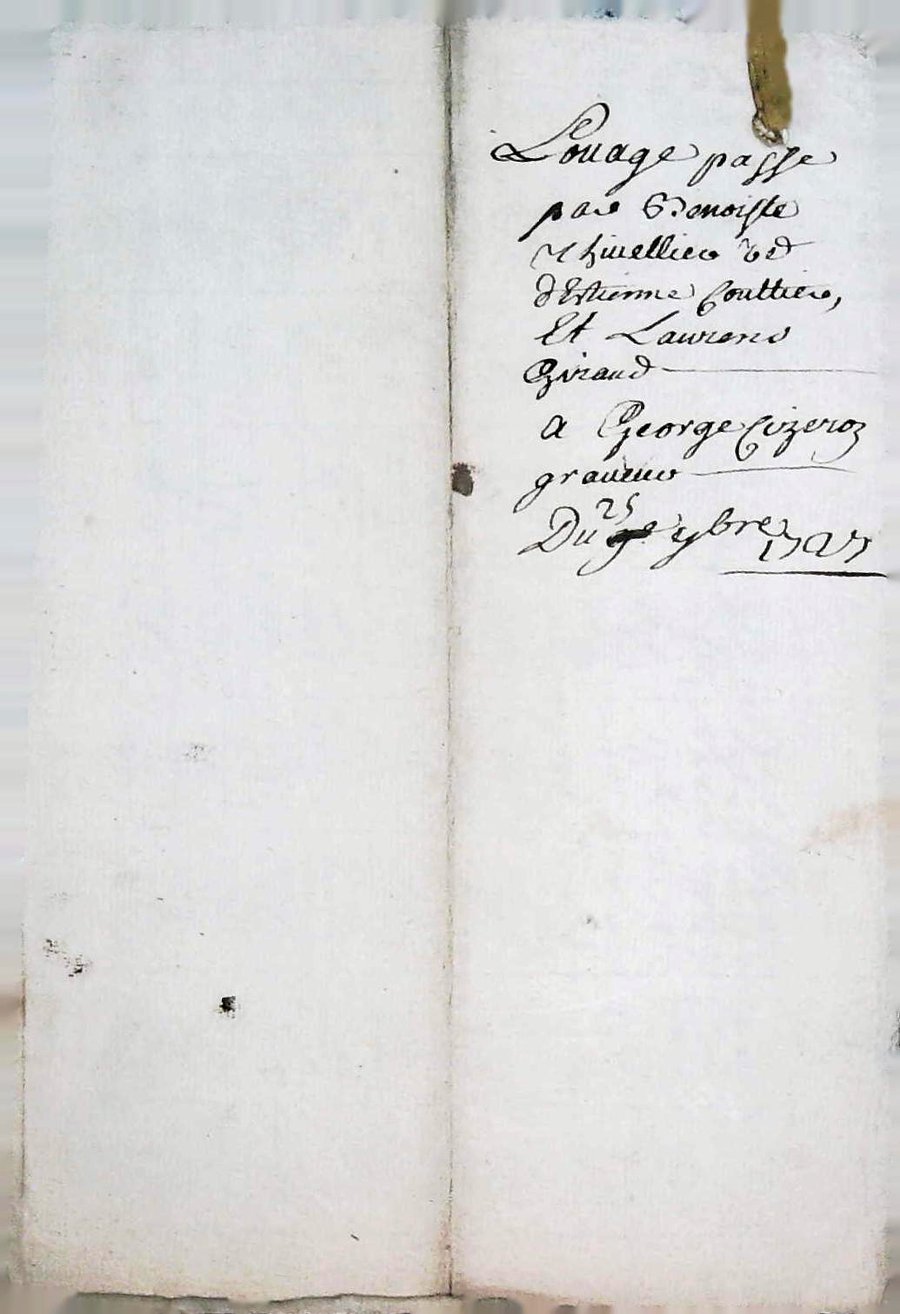 Louage passe
par Benoiste
Thiuellier ved
d'Estienne Couttier,
Et Laurens
Giraud
a George Cizeron
graueur
Du 25 9bre 1727